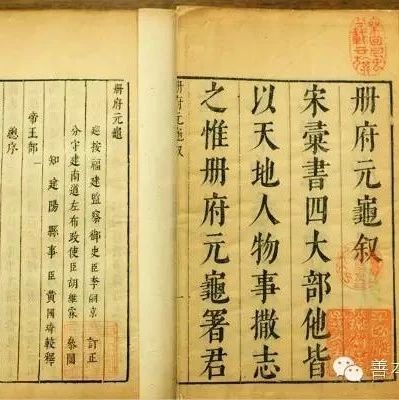 册府元龜叙
宋彙書四大部他皆
以天地人物事撒志
之惟册府元龜署君
册府元龜叙
册府元龜
巡按福建監察御史臣李嗣京 訂正
分守建南道左布政使臣胡維霖 參閱
知建陽縣事臣黃國琦較釋
帝王部
總序
善